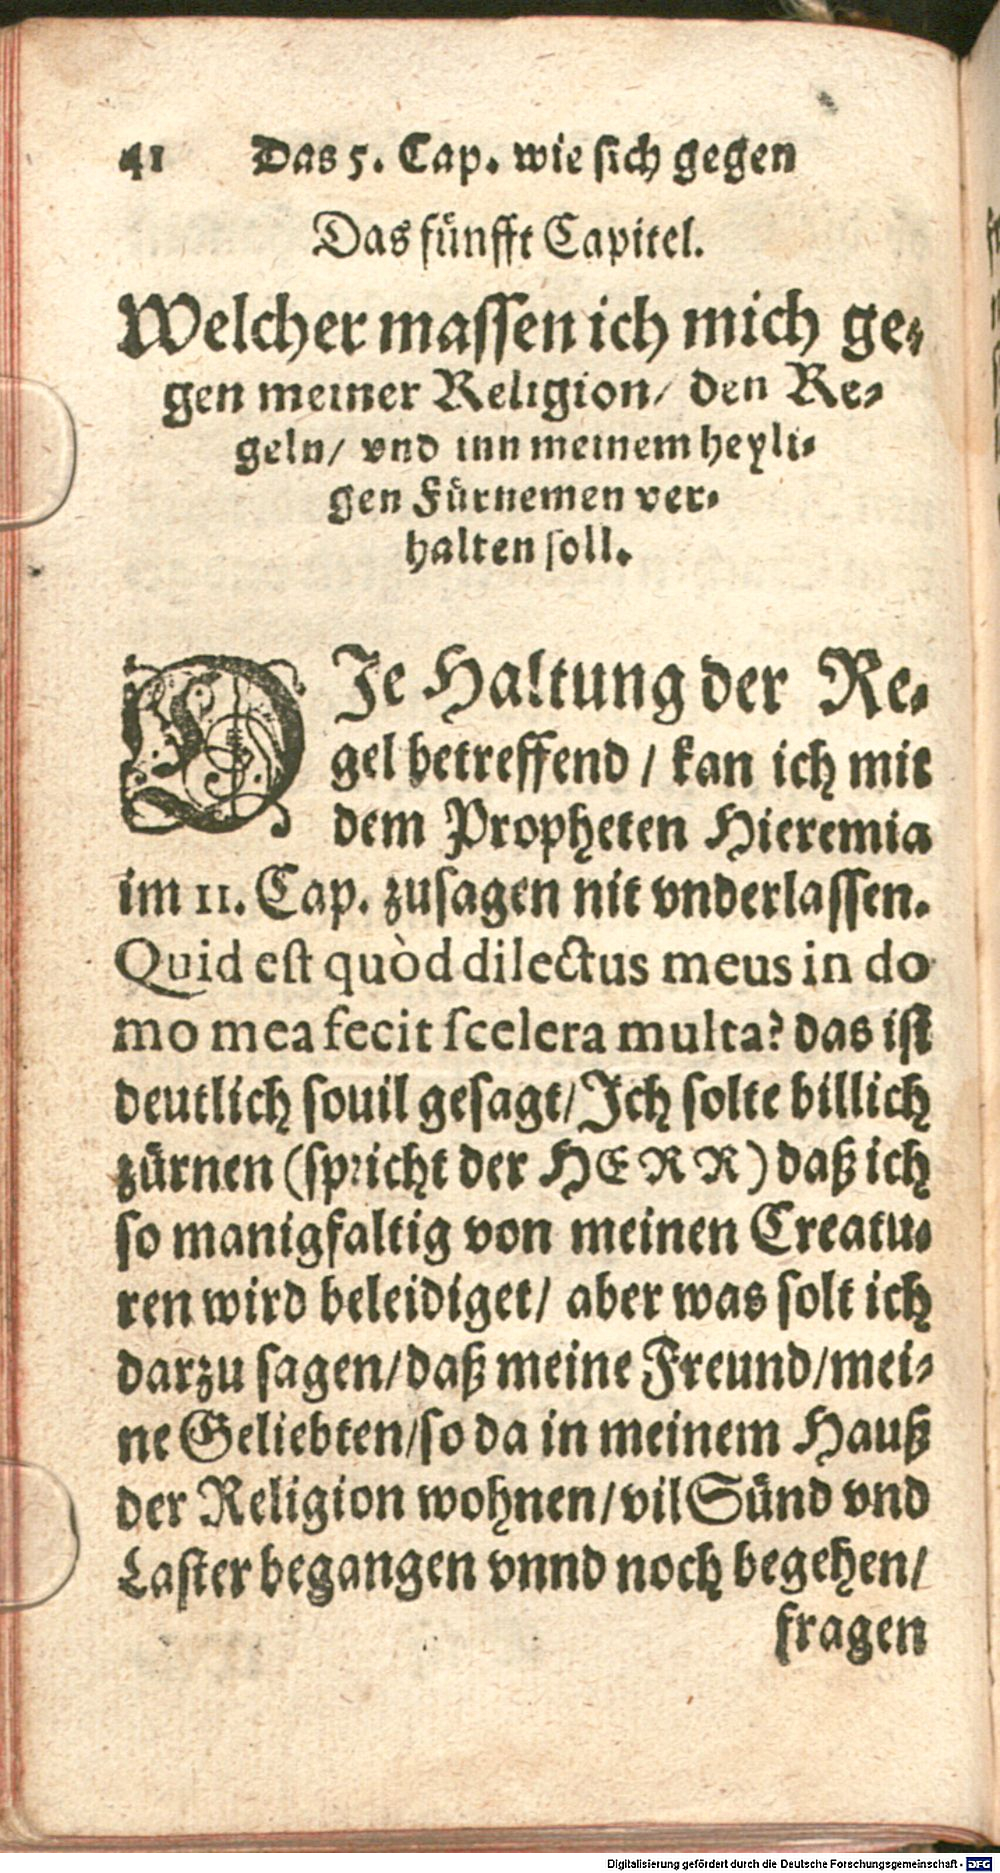 41 Das 5. Cap. wie sich gegen
Das fünfft Capitel.
Welcher massen ich mich ge-
gen meiner Religion/ den Re-
geln/ vnd inn meinem heyli-
gen Fürnemen ver-
halten soll.
DJe Haltung der Re-
gel betreffend / kan ich mit
dem Propheten Hieremia
im 11. Cap. zusagen nit vnderlassen.
Quid est quòd dilectus meus in do
mo mea fecit scelera multa? das ist
deutlich souil gesagt/ Jch solte billich
zürnen (spricht der HERR) daß ich
so manigfaltig von meinen Creatu-
ren wird beleidiget/ aber was solt ich
darzu sagen/ daß meine Freund/ mei-
ne Geliebten/ so da in meinem Hauß
der Religion wohnen/ vil Sünd vnd
Laster begangen vnnd noch begehen/
fragen
Digitalisierung gefördert durch die Deutsche Forschungsgemeinschaft - DFG